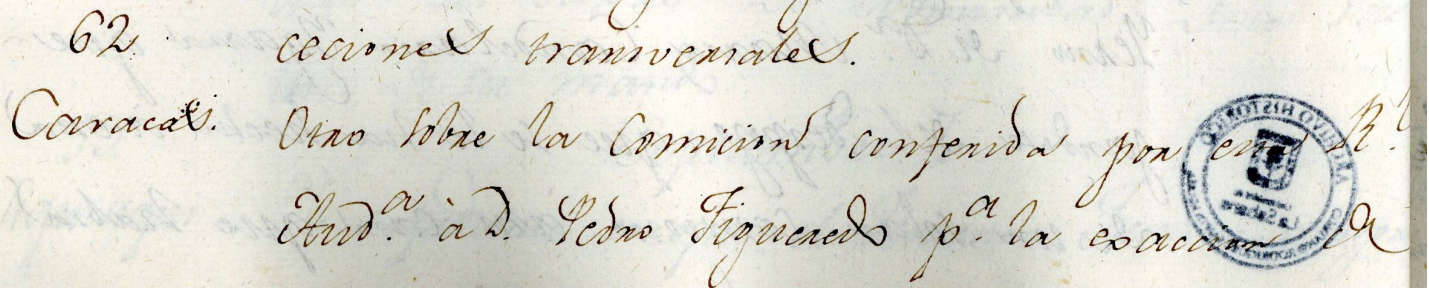 62 ceciones transversales.
Caracas. Otro sobre la Comicion conferida por esta Rl.
Auda. à D. Pedro Figueredo pa. la exaccion de